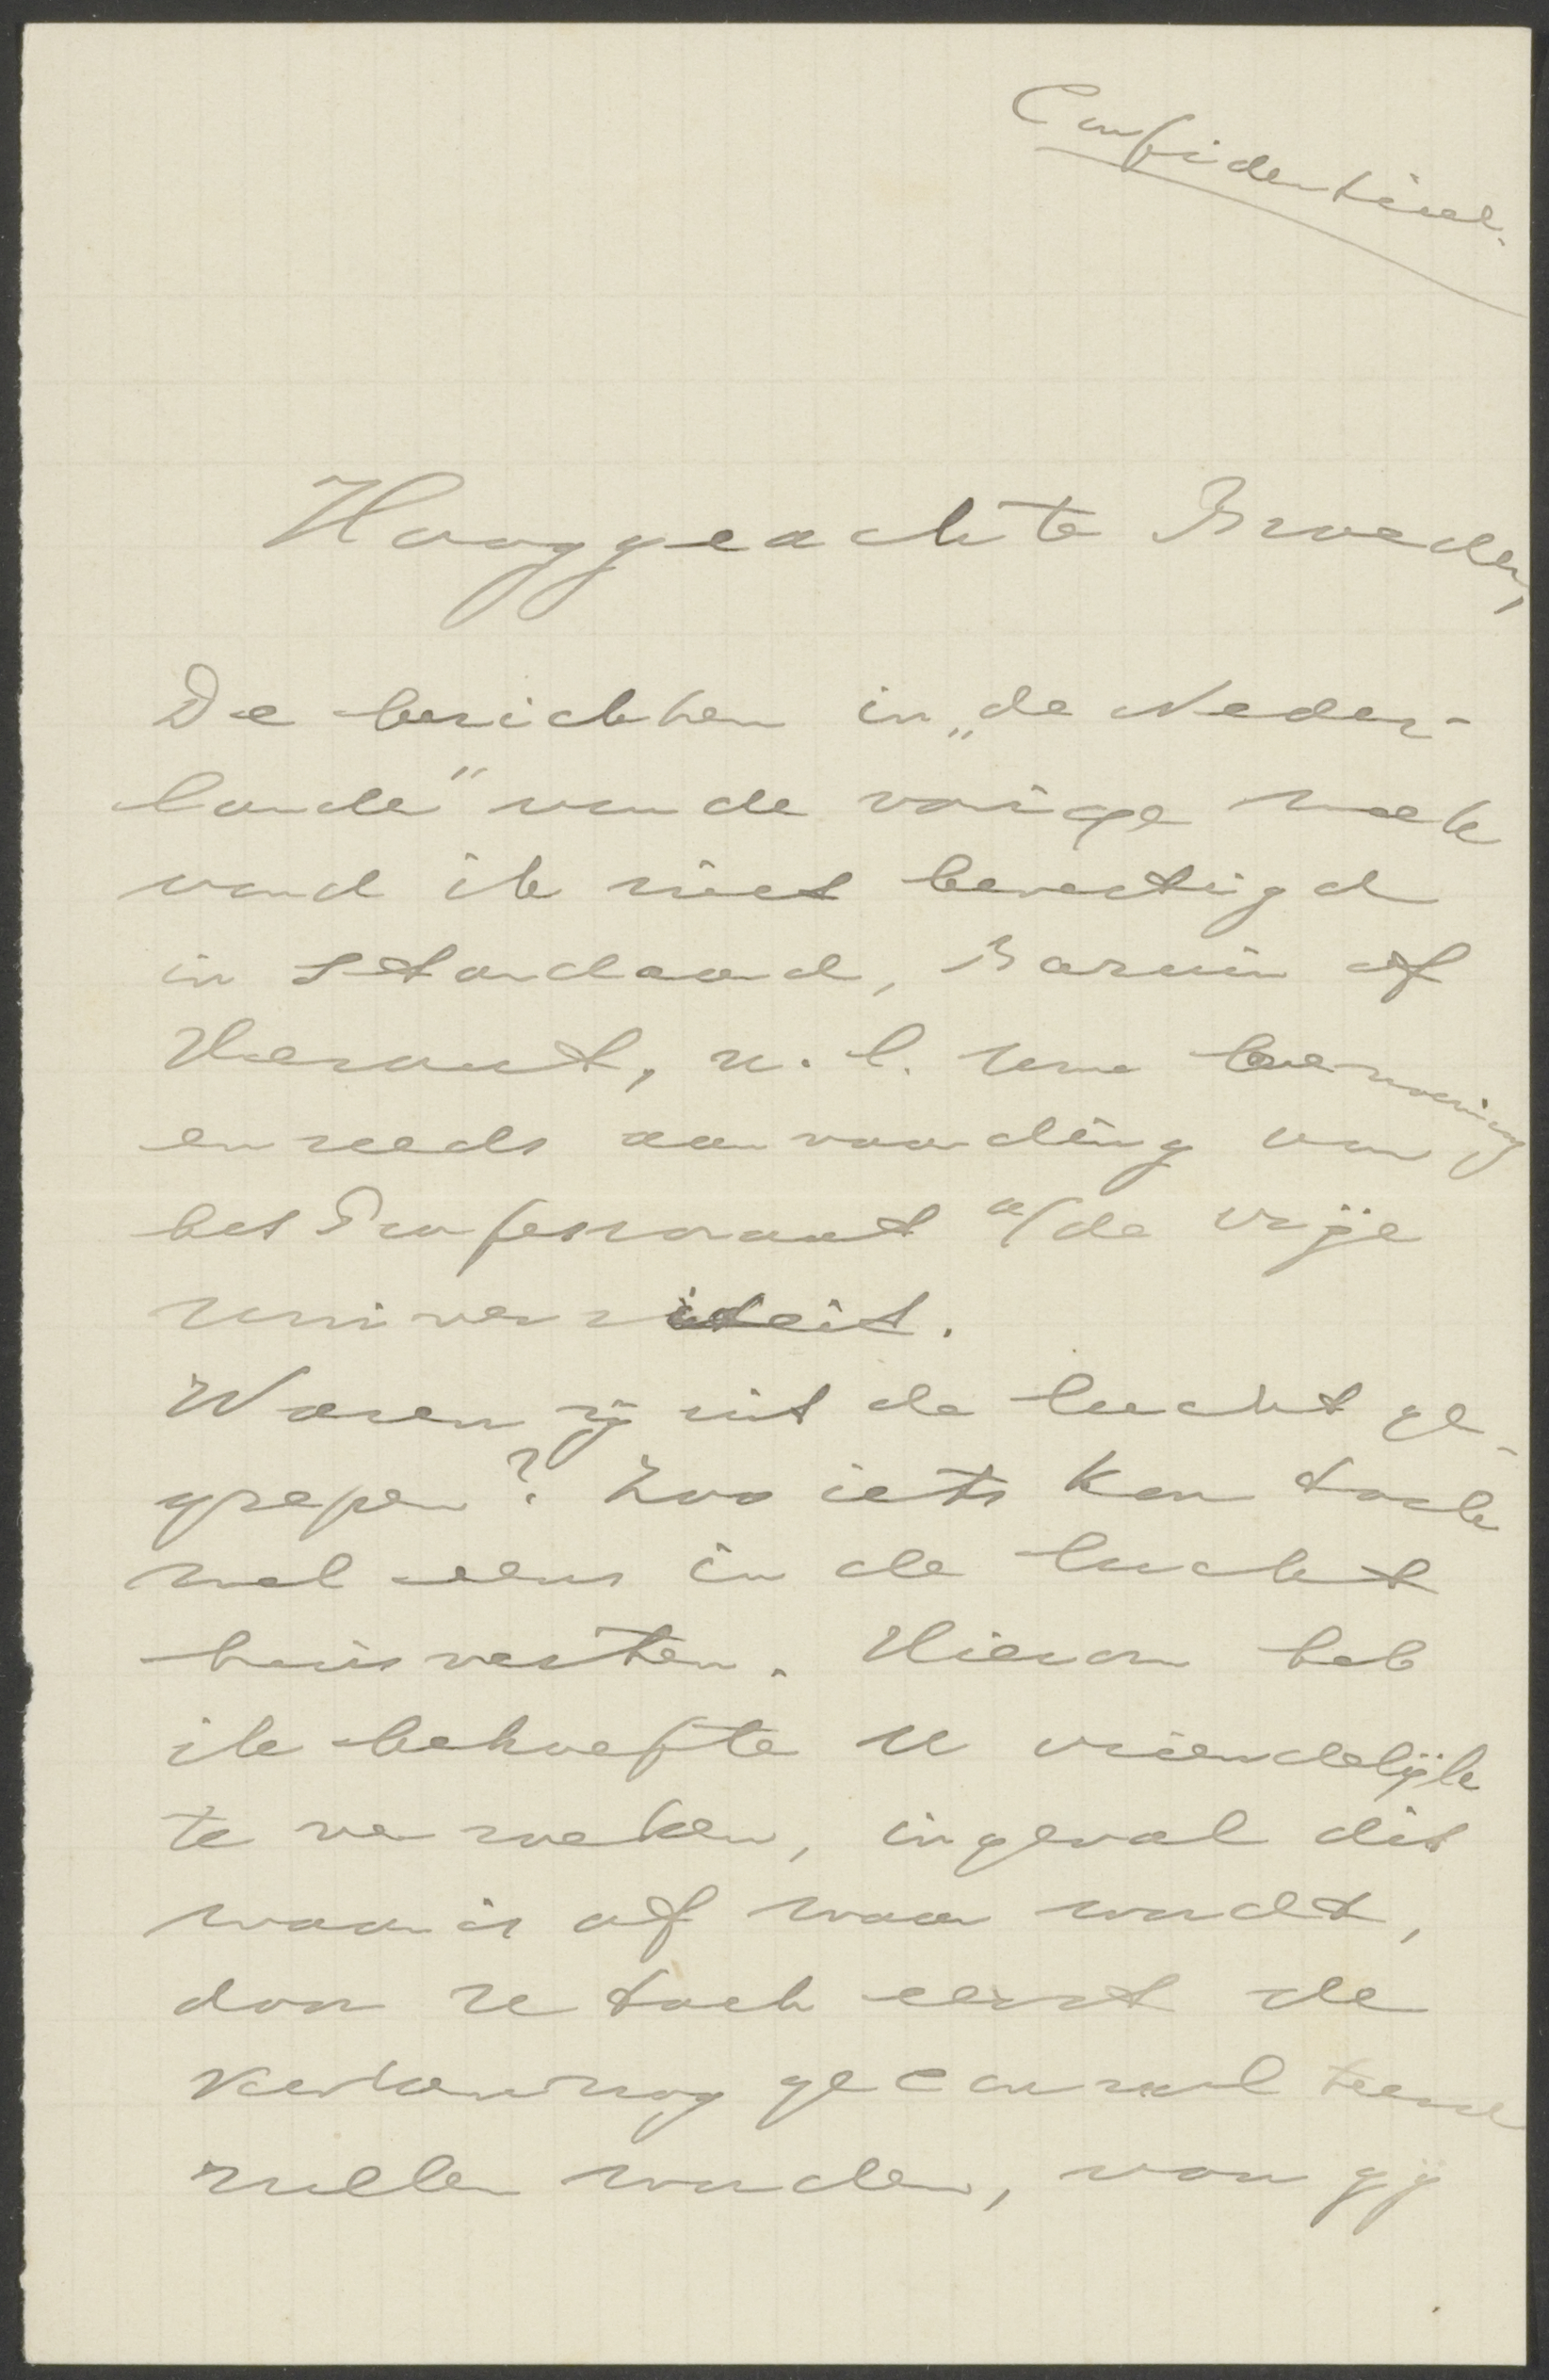 Confidentieel.
Hooggeachte Broeder,
De berichten in „de Neder-
lander" van de vorige week
vond ik niet bevestigd
in Standaard, Bazuin of
Heraut, n.l. Uwe benoeming
en reeds aanvaarding van
het Professoraat a/de Vrije
Universiteit.
Waren zij uit de lucht ge-
grepen? Zoo iets kan toch
wel eens in de lucht
huisvesten. Hierom heb
ik behoefte U vriendelijk
te verzoeken, ingeval dit
waar is of waar wordt,
daar ze toch eerst de
Kerkeraad geconsulteerd
zullen worden, voor gij